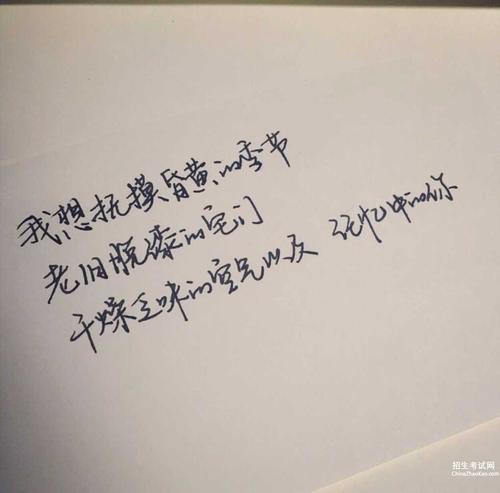 我想抚摸昏黄的季节
老旧脱漆的宅门
干燥乏味的空气以及 记忆中的你
招生考试网
ChinaZhaoKao.com